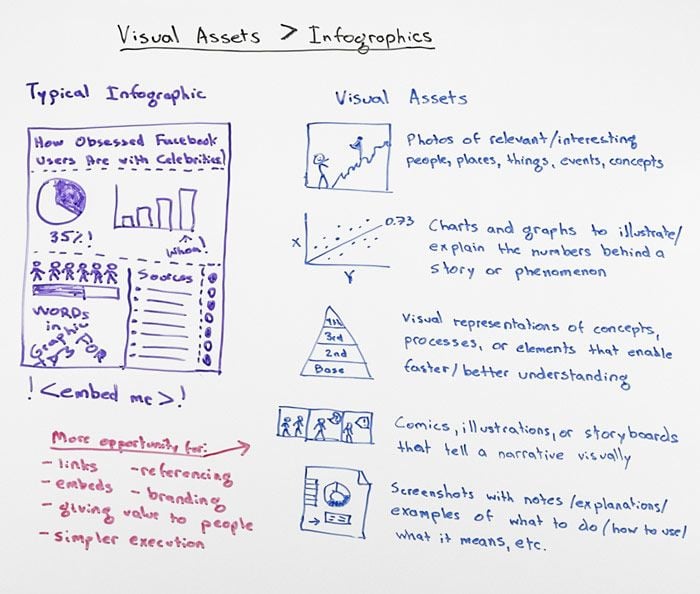 Visual Assets > Infographics
Typical Infographic
How Obsessed Facebook
Users Are with Celebrities!
35%!
Whoa!
Sources
WORDS
in
Graphic
FOR
!<embed me>!
More opportunity for:
- links - referencing
- embeds - branding
- giving value to people
- simpler execution
Visual Assets
Photos of relevant/interesting
people, places, things, events, concepts
X
Y
0.73
Charts and graphs to illustrate/
explain the numbers behind a
story or phenomenon
4th
3rd
2nd
Base
Visual representations of concepts,
processes, or elements that enable
faster/better understanding
Comics, illustrations, or storyboards
that tell a narrative visually
Screenshots with notes/explanations/
examples of what to do/how to use/
what it means, etc.